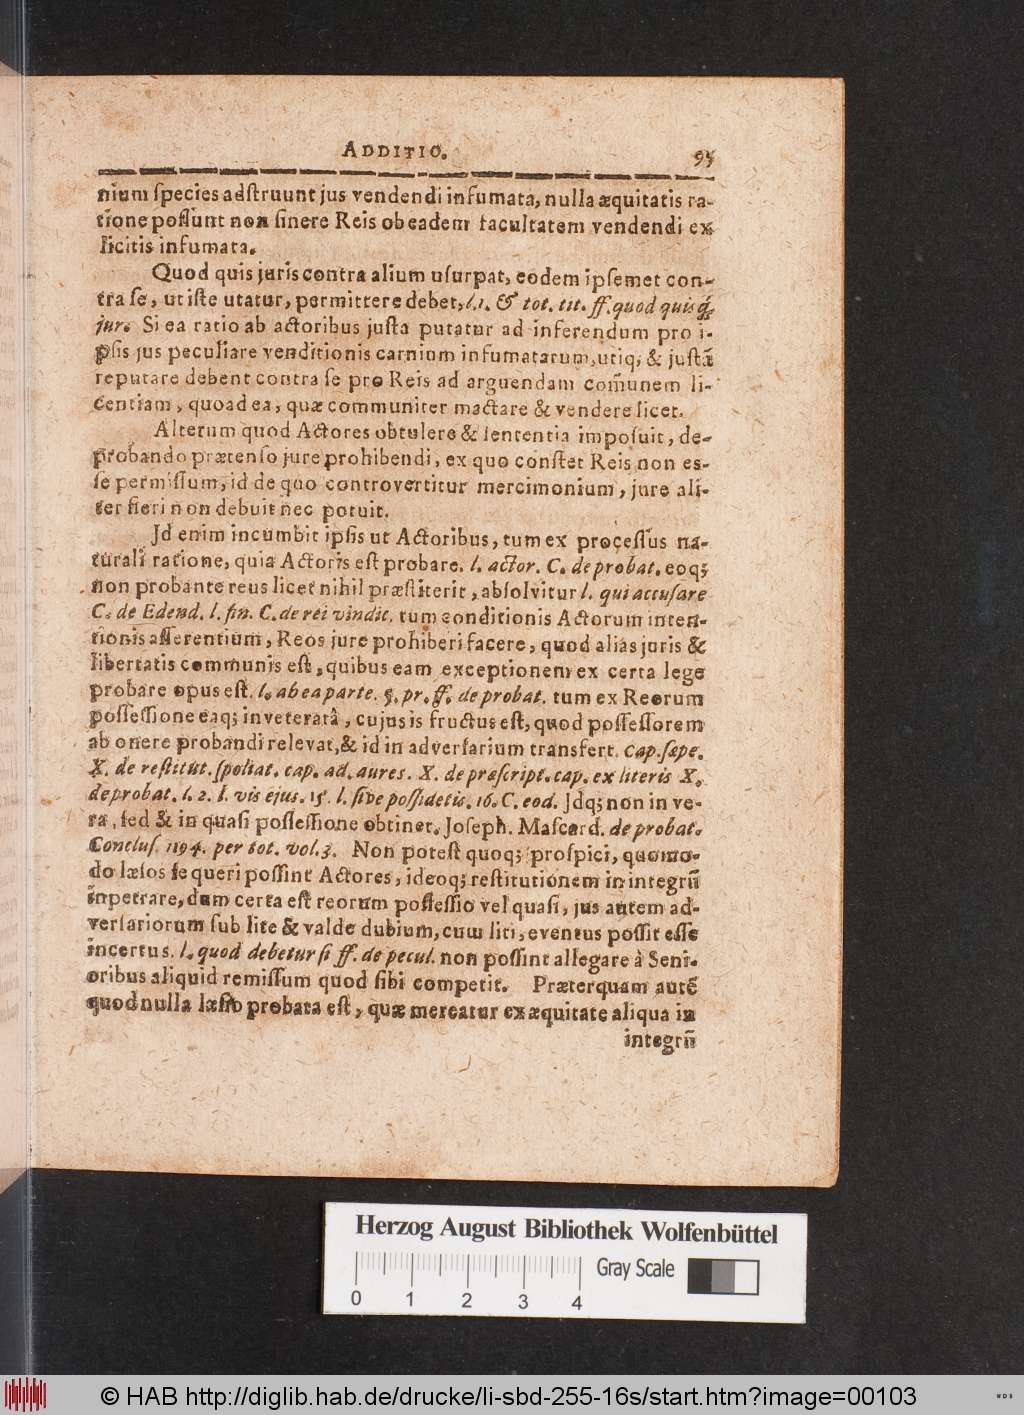 ADDITIO. 95
nium ſpecies adſtruunt jus vendendi infumata, nulla æquitatis ra-
tione poſſunt non ſinere Reis ob eadem facultatem vendendi ex
licitis infumata.
Quod quis juris contra alium uſurpat, eodem ipſemet con-
tra ſe, ut iſte utatur, permittere debet, l.1. & tot. tit. ff. quod quis q́;
jur. Si ea ratio ab actoribus juſta putatur ad inferendum pro i-
pſis jus peculiare venditionis carnium infumatarum, utiq; & juſtã
reputare debent contra ſe pro Reis ad arguendam com̃unem li-
centiam, quoad ea, quæ communiter mactare & vendere licet.
Alterum quod Actores obtulere & ſententia impoſuit, de-
probando prætenſo jure prohibendi, ex quo conſtet Reis non eſ-
ſe permiſſum, id de quo controvertitur mercimonium, jure ali-
ter fieri non debuit nec potuit.
Jd enim incumbit ipſis ut Actoribus, tum ex proceſſus na-
turali ratione, quia Actoris eſt probare. l. actor. C. de probat. eoq;
non probante reus licet nihil præſtiterit, abſolvitur l. qui accuſare
C. de Edend. l. fin. C. de rei vindic. tum conditionis Actorum inten-
tionis aſſerentium, Reos jure prohiberi facere, quod aliàs juris &
libertatis communis eſt, quibus eam exceptionem ex certa lege
probare opus eſt. l. ab ea parte. §. pr. ff. de probat. tum ex Reorum
poſſeſſione eaq; inveteratâ, cujus is fructus eſt, quod poſſeſſorem
ab onere probandi relevat, & id in adverſarium transfert. cap. ſæpe.
X. de reſtitut. ſpoliat. cap. ad. aures. X. de præſcript. cap. ex literis X.
de probat. l. 2. l. vis ejus. 15. l. ſive poſſidetis. 16. C. eod. Jdq; non in ve-
ra, ſed & in quaſi poſſeſſione obtinet. Joſeph. Maſcard. de probat.
Concluſ. 1194. per tot. vol. 3. Non poteſt quoq; proſpici, quomo-
do læſos ſe queri poſſint Actores, ideoq; reſtitutionem in integrũ
inpetrare, dum certa eſt reorum poſſeſſio vel quaſi, jus autem ad-
verſariorum ſub lite & valde dubium, cum liti, eventus poſſit eſſe
incertus. l. quod debetur ſi ff. de pecul. non poſſint allegare à Seni-
oribus aliquid remiſſum quod ſibi competit. Præterquam autẽ
quod nulla læſio probata eſt, quæ mereatur ex æquitate aliqua in
integrũ
Herzog August Bibliothek Wolfenbüttel
Gray Scale
0 1 2 3 4
© HAB http://diglib.hab.de/drucke/li-sbd-255-16s/start.htm?image=00103
WDB